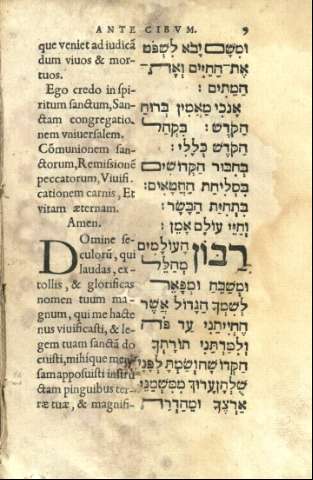 ANTE CIBVM. 9
que veniet ad iudicā
dum viuos & mor-
tuos.
Ego credo in spi-
ritum sanctum, San-
ctam congregatio-
nem vniuersalem.
Cōmunionem san-
ctorum, Remissionē
peccatorum, Viuifi-
cationem carnis, Et
vitam æternam.
Amen.
Domine se-
culorū, qui
laudas, ex-
tollis, & glorificas
nomen tuum ma-
gnum, qui me hacte
nus viuificasti, & le-
gem tuam sanctā do
cuisti, mihique men
sam apposuisti instru
ctam pinguibus ter-
ræ tuæ, & magnifi-
ומשם יבא לשפט
את החיים ואת
המתים:
אנכי מאמין ברוח
הקדש: בקהל
הקדש כללי:
בחבור הקדושים
בסליחת החטאים:
בתחית הבשר:
וחיי עולם אמן:
רבון העולמים
מהלל
ומשבח ומפאר
לשמך הגדול אשר
החייתני עד פה
ולמדתני תורתך
הקדושה ושמת לפני
שלחן ערוך משמני
ארצך